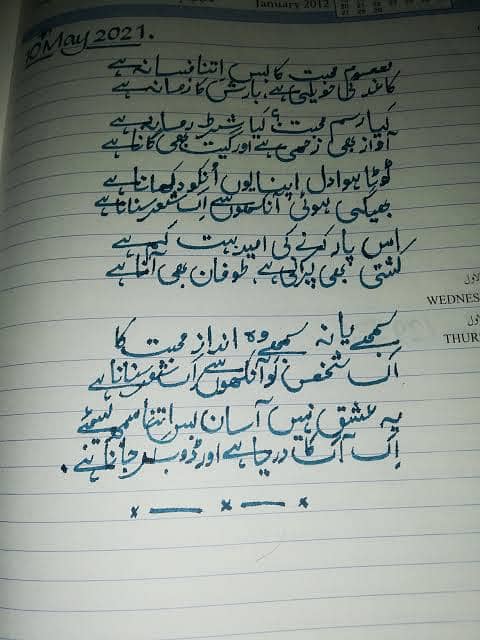 January 2012
10 May 2021.
معصوم محبت کا بس اتنا فسانہ ہے
کاغذ کی حویلی ہے، بارش کا زمانہ ہے
کیا رسم محبت ہے کیا شرط زمانہ ہے
آواز بھی زخمی ہے اور گیت بھی گانا ہے
ٹوٹا ہوا دل اپنا یوں اُنکو دکھانا ہے
بھیگی ہوئی آنکھوں سے اِک شعر سنانا ہے
اُس پار اُترنے کی امید بہت کم ہے
کشتی بھی پرانی ہے، طوفان بھی آنا ہے
سمجھے یا نہ سمجھے وہ انداز محبت کا
اک شخص کو آنکھوں سے اک شعر سنانا ہے
یہ عشق نہیں آساں بس اتنا سمجھ لیجئے
اِک آگ کا دریا ہے اور ڈوب کر جانا ہے.
WEDNES
THUR